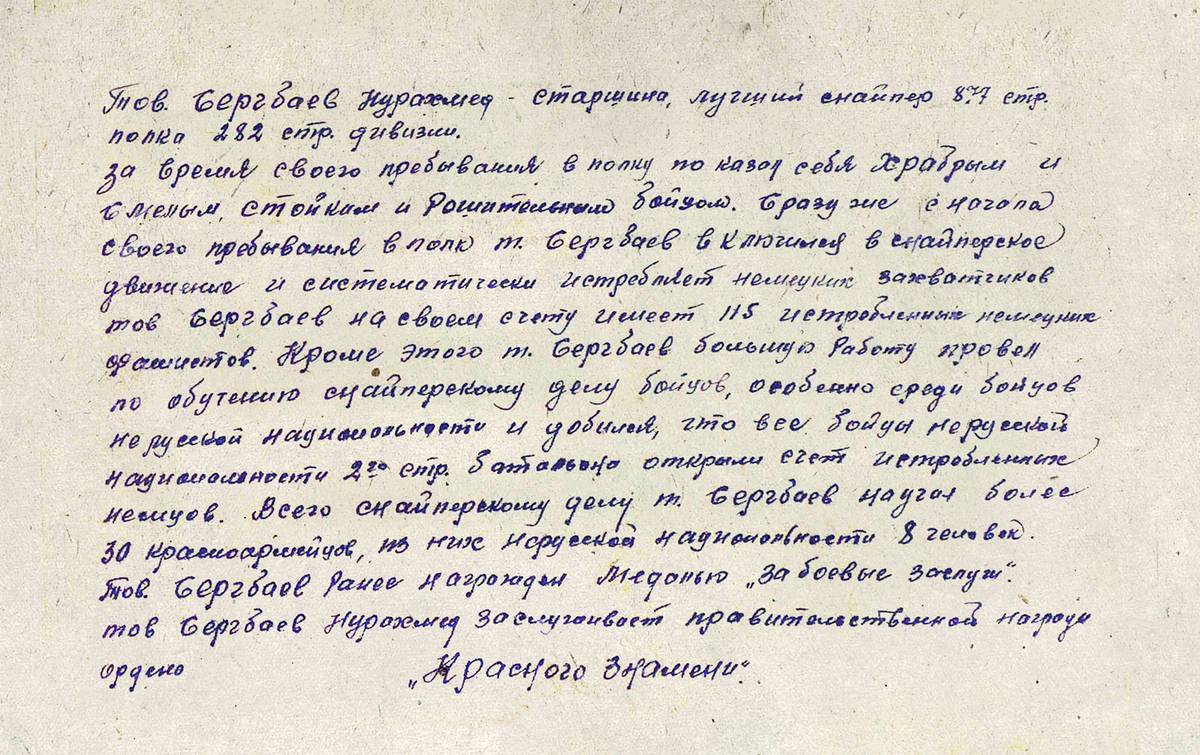 Тов. Сергбаев Нурахмед - старшина, лучший снайпер 877 стр.
полка 282 стр. дивизии.
За время своего пребывания в полку показал себя храбрым и
смелым, стойким и рошительным бойцом. Сразу же с начала
своего пребывания в полк т. Сергбаев включился в снайперское
движение и систематически истребляет немецких захватчиков
тов Сергбаев на своем счету имеет 115 истробленных немецких
фашистов. Кроме этого т. Сергбаев большую работу провел
по обутению снайперскому делу бойцов, особенно среди бойцов
нерусской национальности и добился, что все бойцы нерусской
национальности 2го стр. батальона открыли счет истробленных
немцов. Всего снайперскому делу т. Сергбаев научал более
30 красноармейцов, из них нерусской национальности 8 человек.
Тов. Сергбаев ранее награжден медалью „За боевые заслуги".
тов Сергбаев Нурахмед заслугивает правительственной награды
ордена „Красного Знамени"